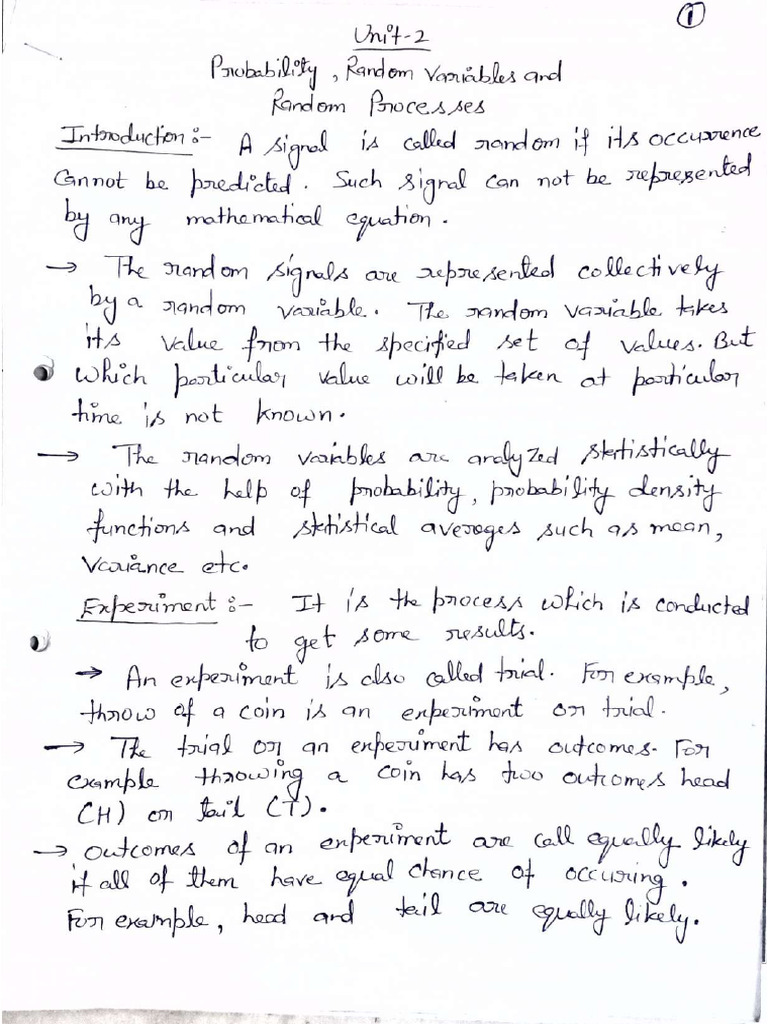 1
Unit-2
Probability, Random Variables and
Random Processes
Introduction:- A signal is called random if its occurrence
cannot be predicted. Such signal can not be represented
by any mathematical equation.
→ The random signals are represented collectively
by a random variable. The random variable takes
its value from the specified set of values. But
which particular value will be taken at particular
time is not known.
→ The random variables are analyzed statistically
with the help of probability, probability density
functions and statistical averages such as mean,
variance etc.
Experiment:- It is the process which is conducted
to get some results.
→ An experiment is also called trial. For example,
throw of a coin is an experiment or trial.
→ The trial or an experiment has outcomes. For
example throwing a coin has two outcomes head
(H) or tail (T).
→ Outcomes of an experiment are call equally likely
if all of them have equal chance of occuring.
For example, head and tail are equally likely.